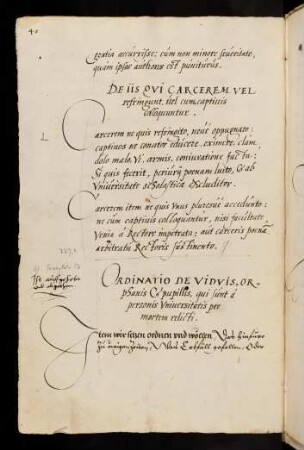 40
gratia accurrisse: cùm non minore seueritate,
quàm ipsos authores est puniturus.
DE IIS QVI CARCEREM VEL
refringunt, vel cum captiuis
colloquuntur.
Carcerem ne quis refringito, neuè oppugnato:
captiuos ne conator educere, eximere, clàm,
dolo malo, Vi, armis, conuocatione factu:
Si quis fecerit, periurij poenam luito, & ab
Vniuersitate scholastica excluditor.
Carcerem item ne quis Vnus pluresuè accedunto:
ne cum captiuis colloquuntor, nisi facultate
Venia à Rectore impetrata: aut carceris poenam
arbitratu Rectoris sustinento.
ORDINATIO DE VIDVIS, OR-
phanis & pupillis, qui sunt à
personis Vniuersitatis per
mortem relicti.
Item wir setzen ordnen vnd wöllen, Das hinfuro